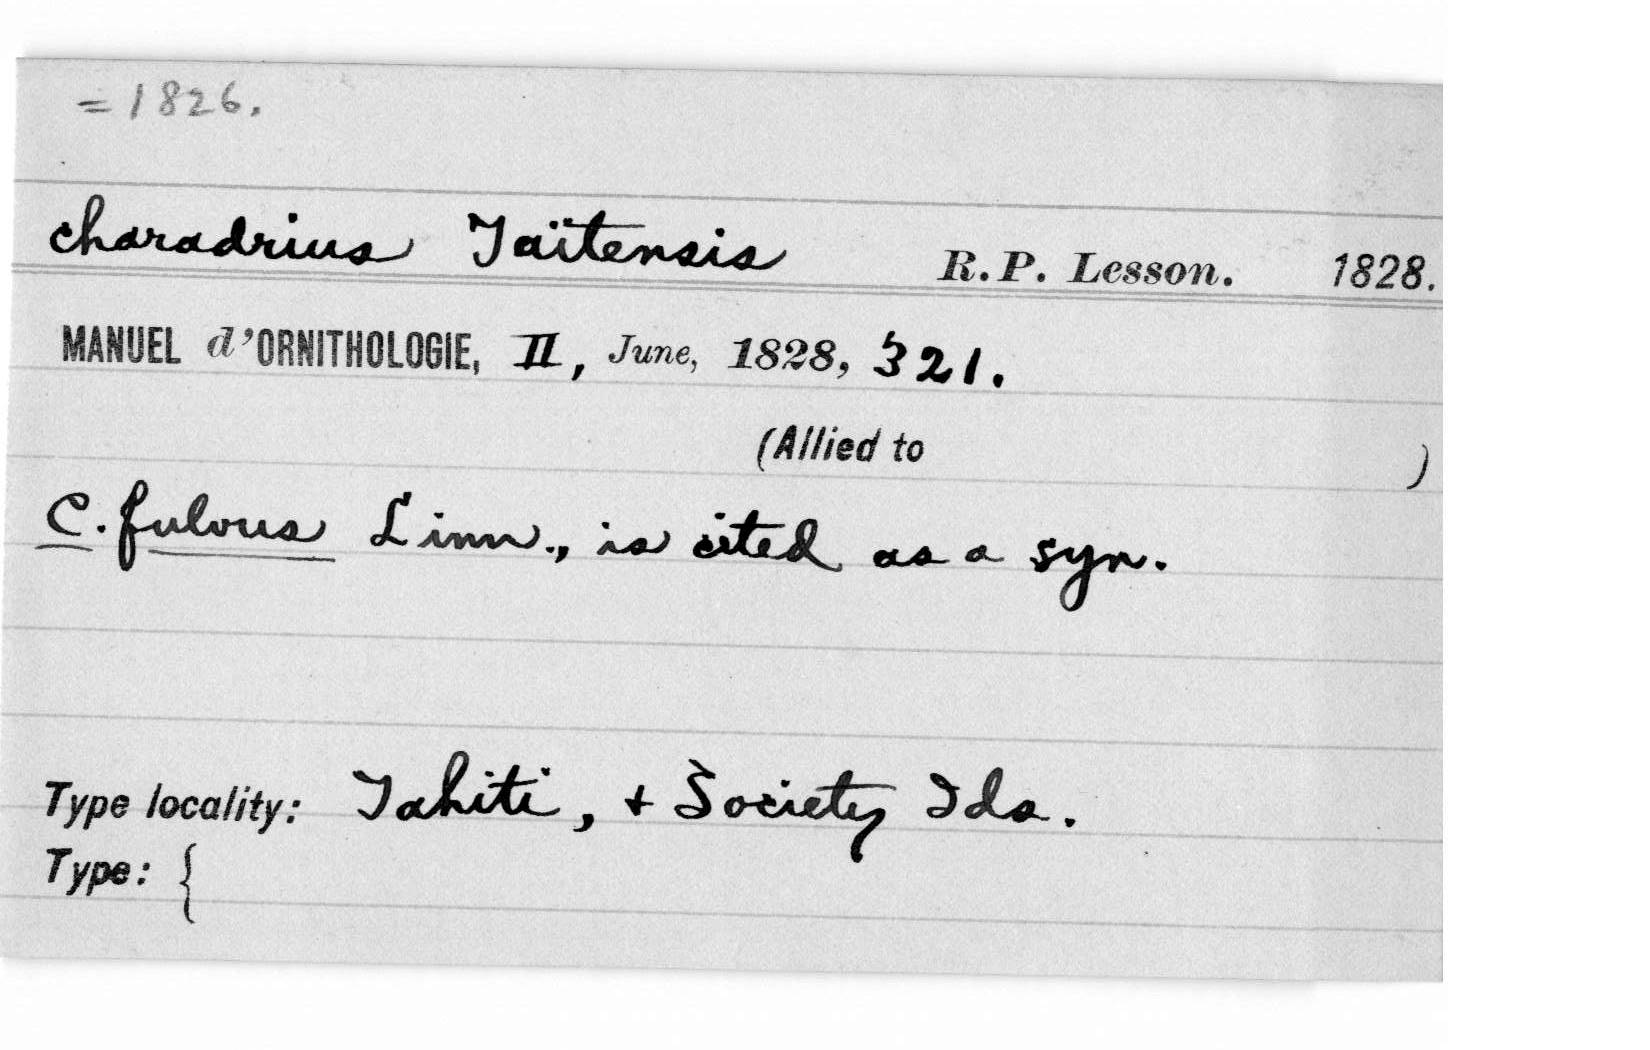 = 1826.
charadrius Taïtensis R.P. Lesson. 1828.
MANUEL d'ORNITHOLOGIE, II, June, 1828, 321.
(Allied to )
C. fulvus Linn., is cited as a syn.
Type locality: Tahiti, + Society Ids.
Type: {